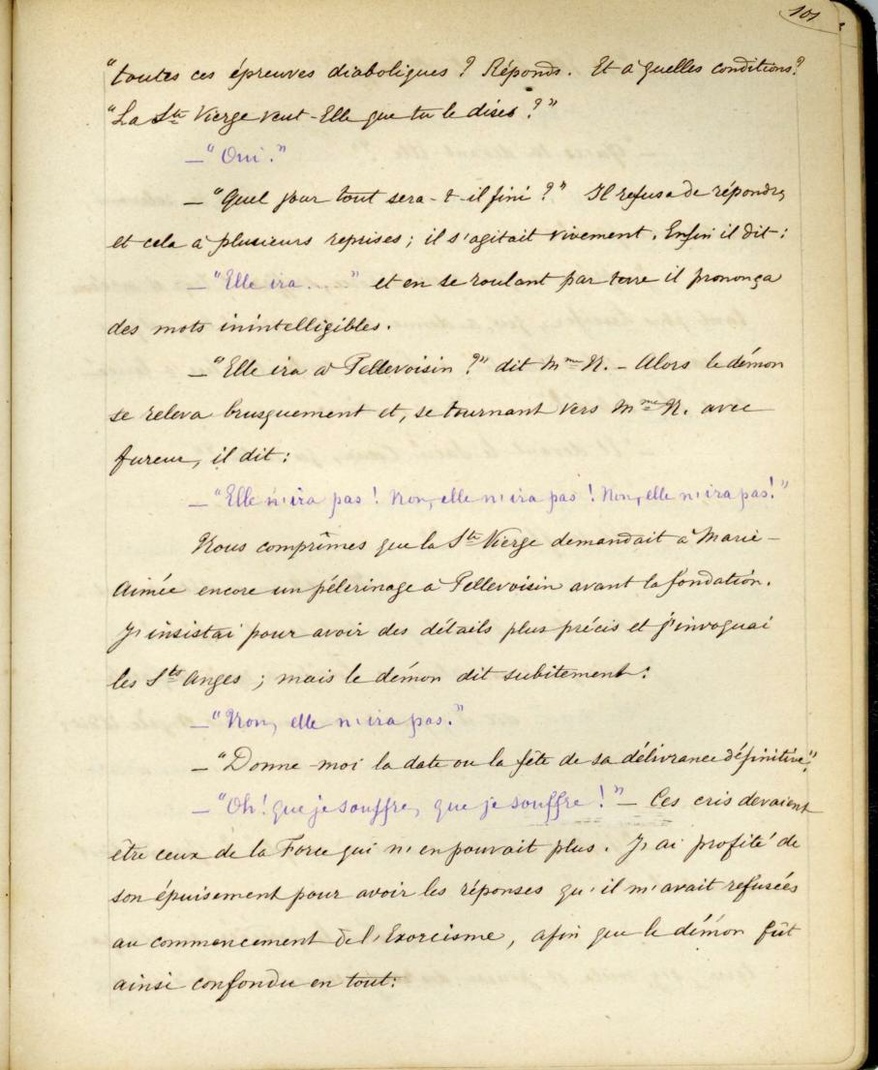 101
"toutes ces épreuves diaboliques ? Réponds. Et à quelles conditions?
"La Ste Vierge veut-Elle que tu le dises ?"
— "Oui."
— "Quel jour tout sera-t-il fini ?" Il refusa de répondre,
et cela à plusieurs reprises ; il s'agitait vivement. Enfin il dit :
— "Elle ira . . . " et en se roulant par terre il prononça
des mots inintelligibles.
— "Elle ira à Pellevoisin ?" dit Mme N. — Alors le démon
se releva brusquement et, se tournant vers Mme N. avec
fureur, il dit :
— "Elle n'ira pas ! Non, elle n'ira pas ! Non, elle n'ira pas!"
Nous comprîmes que la Ste Vierge demandait à Marie-
Aimée encore un pélerinage à Pellevoisin avant la fondation.
J'insistai pour avoir des détails plus précis et j'invoquai
les Sts Anges ; mais le démon dit subitement :
— "Non, elle n'ira pas."
— "Donne-moi la date ou la fête de sa délivrance définitive".
— "Oh! que je souffre, que je souffre !" — Ces cris devaient
être ceux de la Force qui n'en pouvait plus. J'ai profité de
son épuisement pour avoir les réponses qu'il m'avait refusées
au commencement de l'Exorcisme, afin que le démon fût
ainsi confondu en tout :